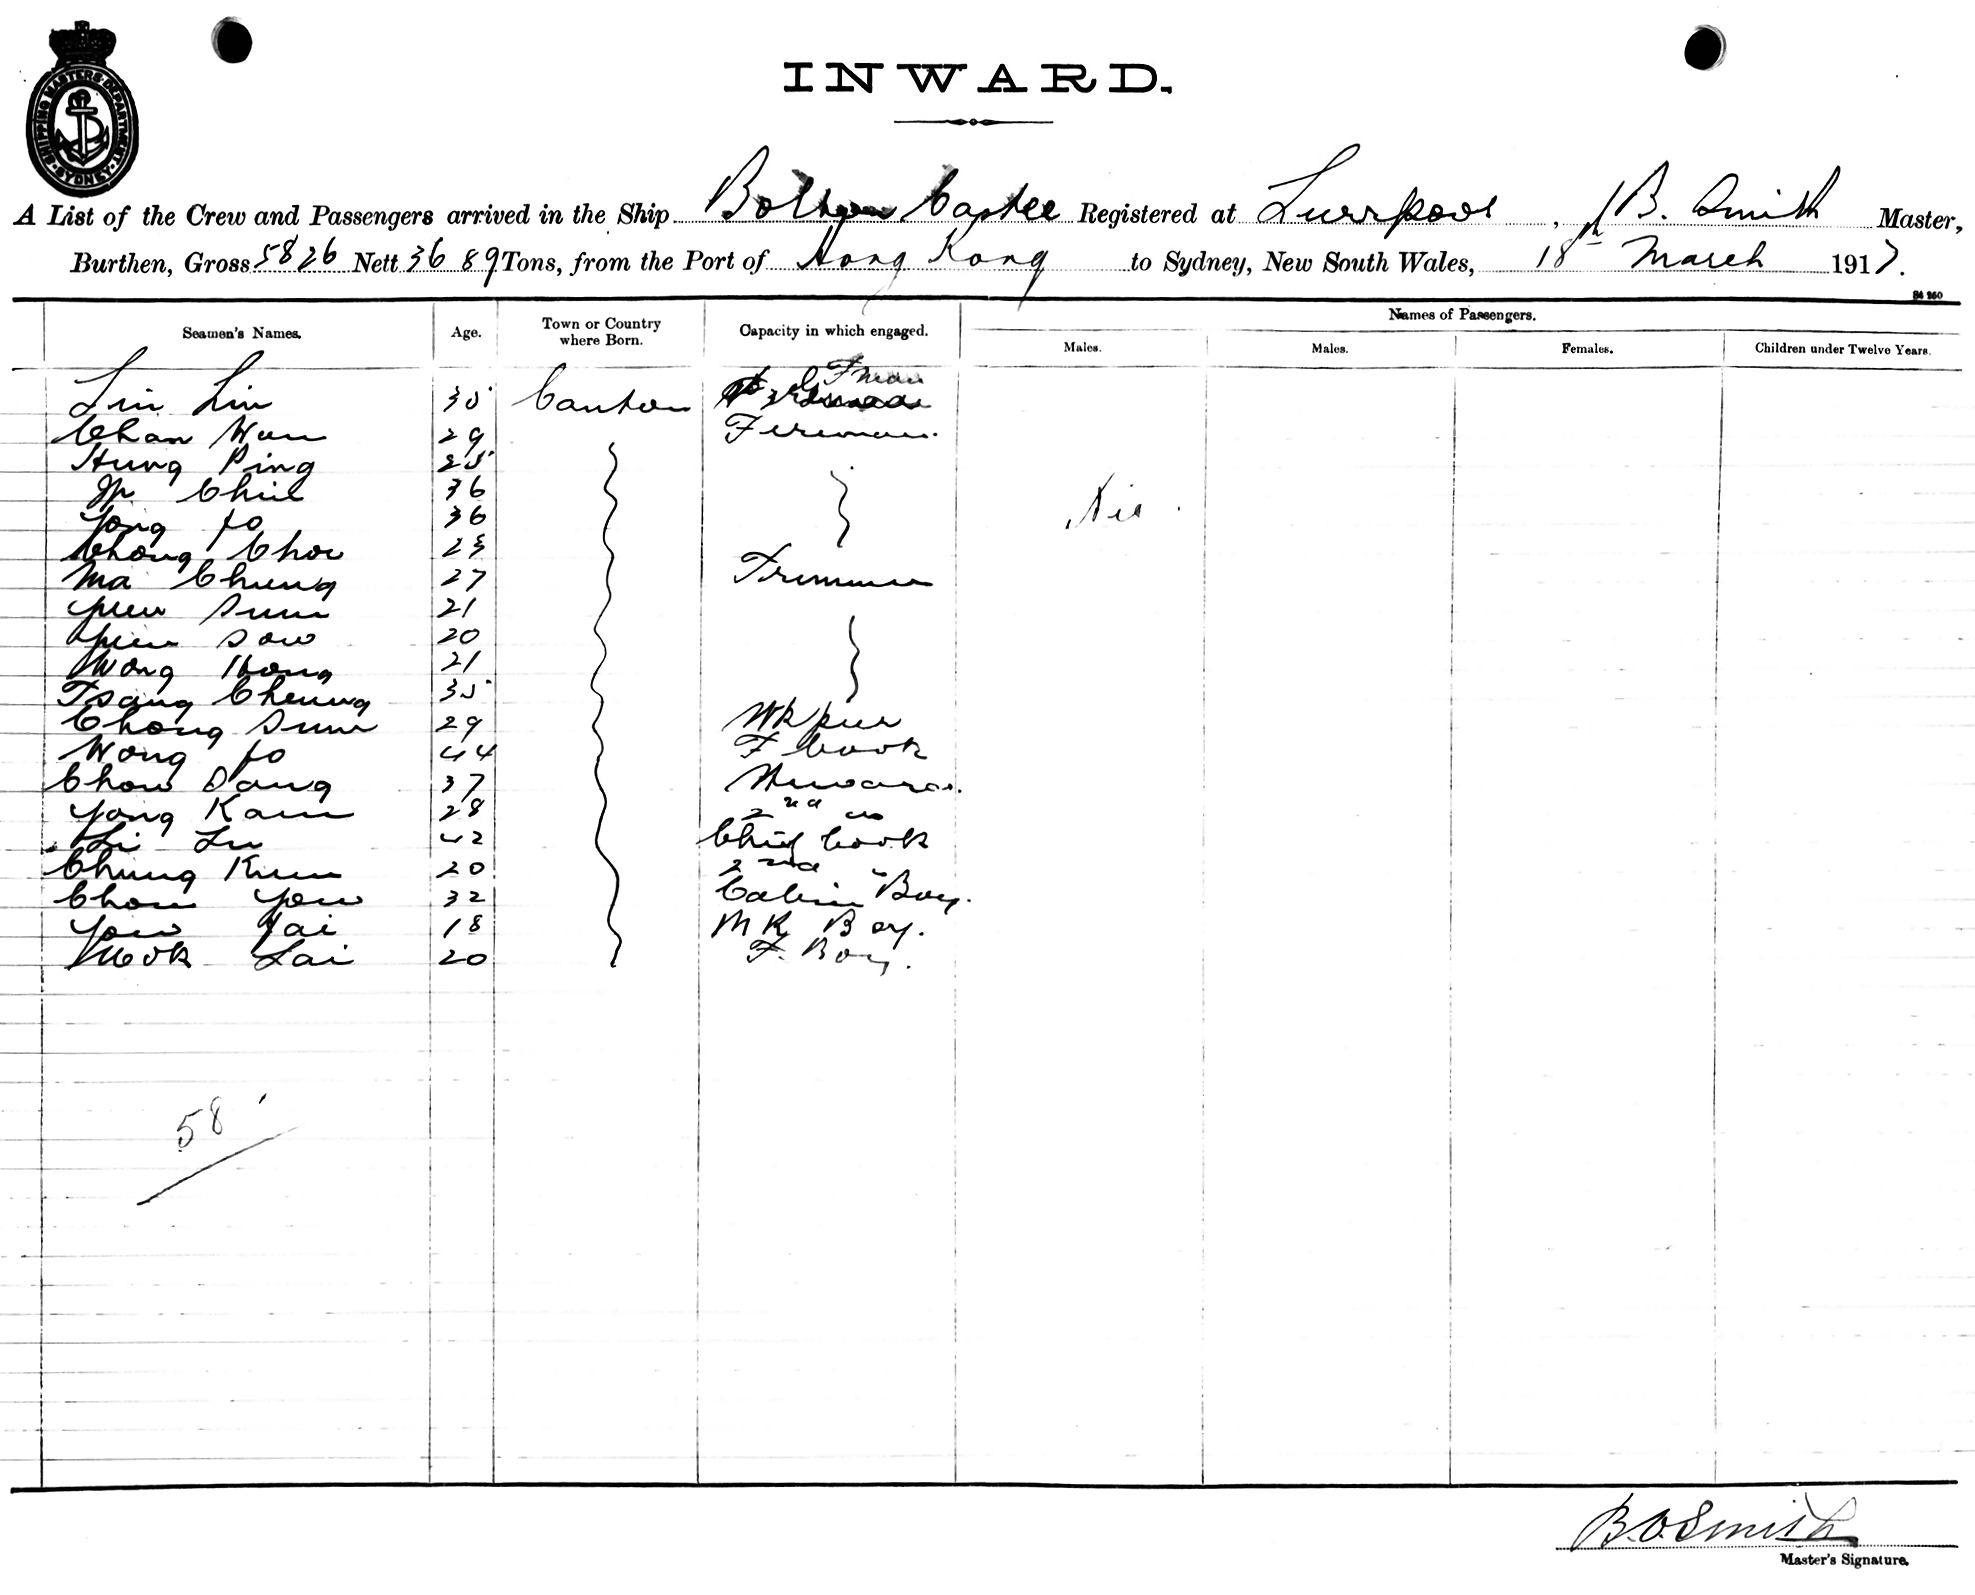 SHIPPING MASTERS DEPARTMENT SYDNEY
INWARD.
A List of the Crew and Passengers arrived in the Ship Bolton Castle Registered at Liverpool, B. Smith Master,
Burthen, Gross 5826 Nett 3689 Tons, from the Port of Hong Kong to Sydney, New South Wales, 18th March 1917.
Seamen's Names. Age. Town or Country where Born. Capacity in which engaged. Names of Passengers.
Males. Males. Females. Children under Twelve Years.
Lin Lin 35 Canton Fman
Chan Wan 29 Fireman.
Hung Ping 25
Ip Chiu 36
Yong Jo 36 Nil.
Chong Choi 23
Ma Cheung 27 Trimmer
Yiew Sum 21
Yiew Sow 20
Wong Hong 21
Tsang Cheung 35
Chong Sum 29 Wkpr
Wong Jo 44 F Cook
Chow Sang 37 Steward.
Yong Kam 28 2nd do
Li Lu 42 Chief Cook
Chung Kum 20 2nd "
Chow Yow 32 Cabin Boy.
Yow Tai 18 M R Boy.
Mook Lai 20 F. Boy.
58
B.O. Smith
Master's Signature.